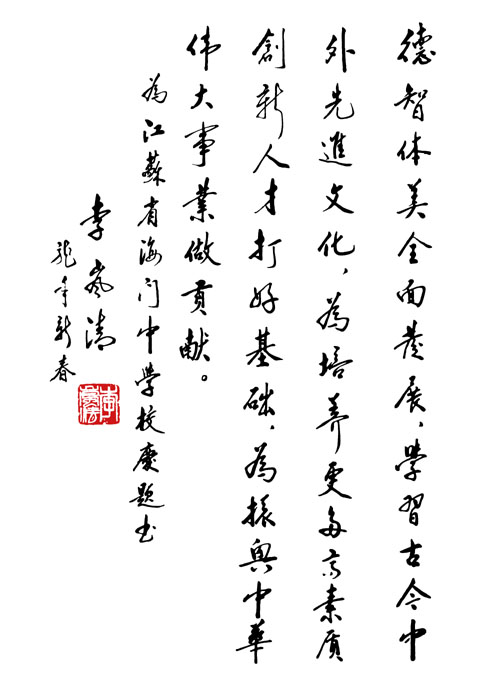 德智体美全面发展，學習古今中
外先進文化，為培养更多高素质
創新人才打好基础，為振興中華
伟大事業做贡献。
為江蘇省海门中學校慶題书
李岚清
龍年新春